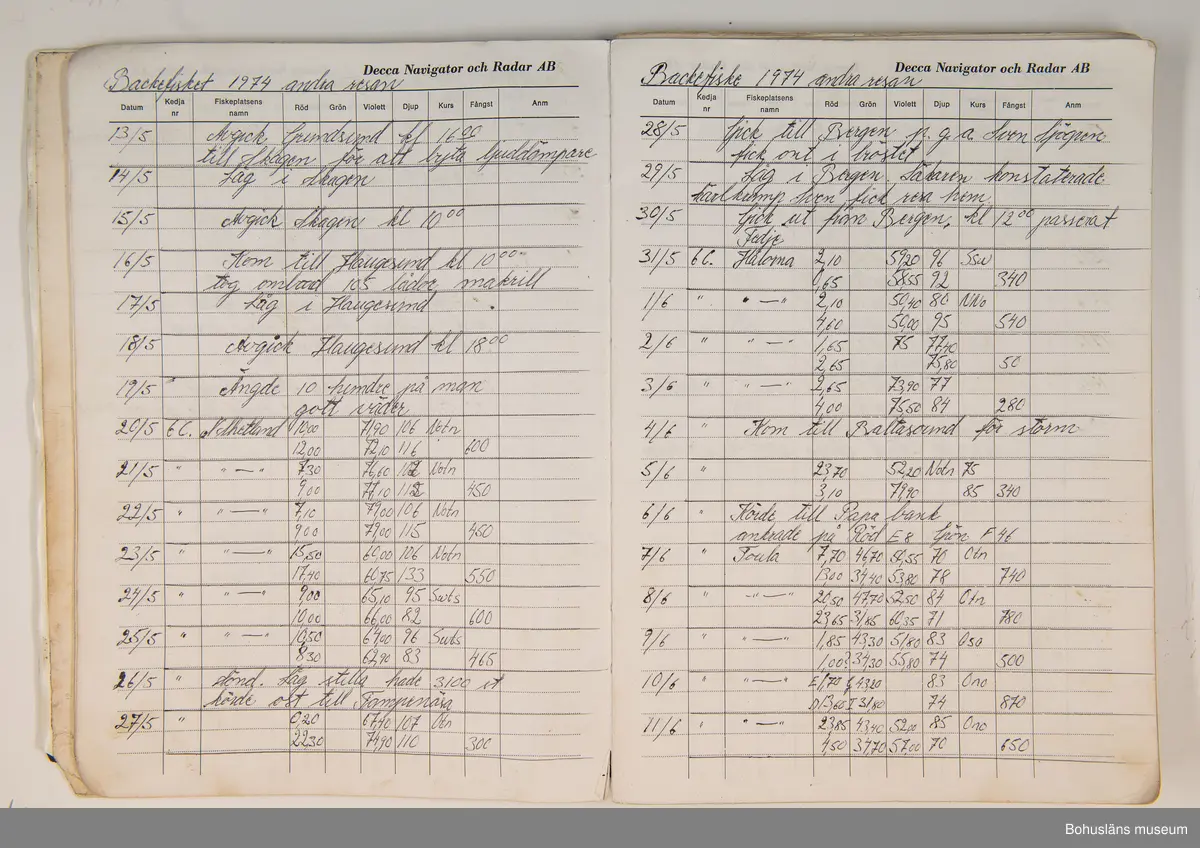 Decca Navigator och Radar AB
Backefisket 1974 andra resan
Datum Kedja nr Fiskeplatsens namn Röd Grön Violett Djup Kurs Fångst Anm
13/5 Avgick Grundsund kl 16.00
till Skagen för att byta ljuddämpare
14/5 Låg i Skagen
15/5 Avgick Skagen kl 10.00
16/5 Kom till Haugesund kl 10.00
tog ombord 105 lådor makrill
17/5 Låg i Haugesund
18/5 Avgick Haugesund kl 18.00
19/5 " Ängde 10 hundre på man
gott väder
20/5 6C. N Shetland 10,00 71,90 106 Notn
12,00 72,10 116 600
21/5 " " — " 7,30 76,60 102 Notn
9,00 77,10 112 450
22/5 " " — " 7,10 79,00 106 Notn
9,00 79,00 115 450
23/5 " " — " 15,50 60,00 106 Notn
17,40 60,75 133 550
24/5 " " — " 9,00 65,10 95 Swts
10,00 66,00 82 600
25/5 " " — " 10,50 64,00 96 Swts
8,30 62,90 83 465
26/5 " sönd. Låg stilla hade 3100 st
körde ost till
27/5 " 0,20 67,40 107 Otn
22,30 74,90 110 300
Decca Navigator och Radar AB
Backefiske 1974 andra resan
Datum Kedja nr Fiskeplatsens namn Röd Grön Violett Djup Kurs Fångst Anm
28/5 Gick till Bergen p.g.a Sven Sjögren
fick ont i bröstet
29/5 Låg i Bergen. Läkaren konstaterade
kärlkramp Sven fick resa hem.
30/5 Gick ut från Bergen, kl 12.00 passerat
Fedje
31/5 6C. 2,10 59,20 96 Ssw
0,65 58,55 92 340
1/6 " " — " 2,10 50,40 80 NNo
4,00 50,00 95 540
2/6 " " — " 1,65 75 77,40
2,65 75,80 50
3/6 " " — " 2,65 73,90 77
4,00 75,50 84 280
4/6 " Kom till Baltasound för storm
5/6 " 23,70 52,20 Notn 75
3,10 79,90 85 340
6/6 " Körde till Papa bank
ankrade på Röd E 8 Grön F 46
7/6 " Foula 7,70 46,70 50,55 70 Otn
13,00 34,40 53,80 78 740
8/6 " " — " 20,50 47,70 52,50 84 Otn
23,65 31,85 60,35 71 780
9/6 " " — " 1,85 43,30 51,80 83 Oso
1,00? 34,30 55,80 74 500
10/6 " " — " E 1,70 43,20 83 Ono
I 31,80 74 870
11/6 " " — " 23,85 43,40 52,00 85 Ono
4,50 34,70 57,00 70 650
Bohusläns museum